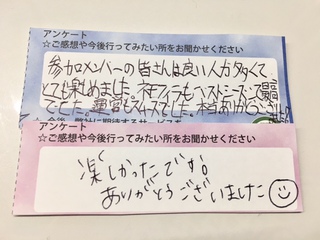 アンケート
☆ご感想や今後行ってみたい所をお聞かせください
参加メンバーの皆さんは良い人方多くて
とても楽しめました。ネモフィラもベストシーズンで最高
でした。運営もスムーズでした。本当ありがとうござい
ました
アンケート
☆ご感想や今後行ってみたい所をお聞かせください
楽しかったです。
ありがとうございました